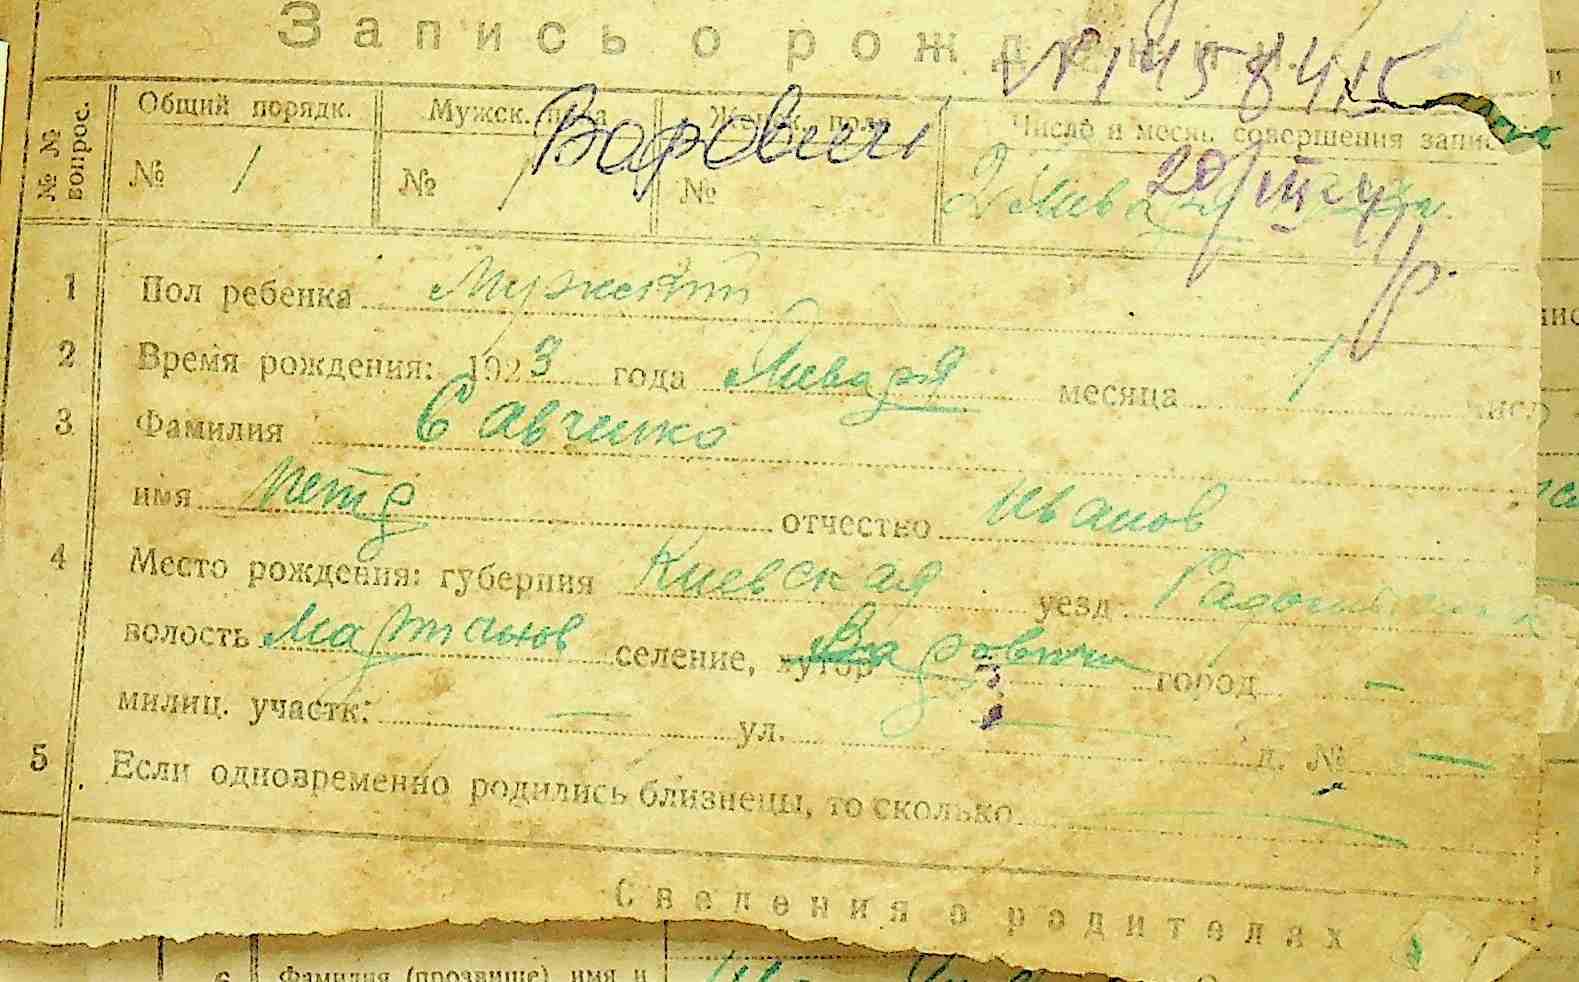 Запись о рождении.
№ № вопрос. Общий порядк. Мужск. пола Женск. пола Число и месяц совершения запис
Варовичи
№ 1 № 1 № 2 Янв
20/III
1 Пол ребенка Мужский
2 Время рождения: 1923 года Января месяца 1 число
3 Фамилия Савченко
имя Петр отчество Иванов
4 Место рождения: губерния Киевская уезд
волость Мартынов селение, хутор Варовичи город —
милиц. участк: — ул. — д. № —
5 Если одновременно родились близнецы, то сколько —
Сведения о родителях
6 Фамилия (прозвище), имя и